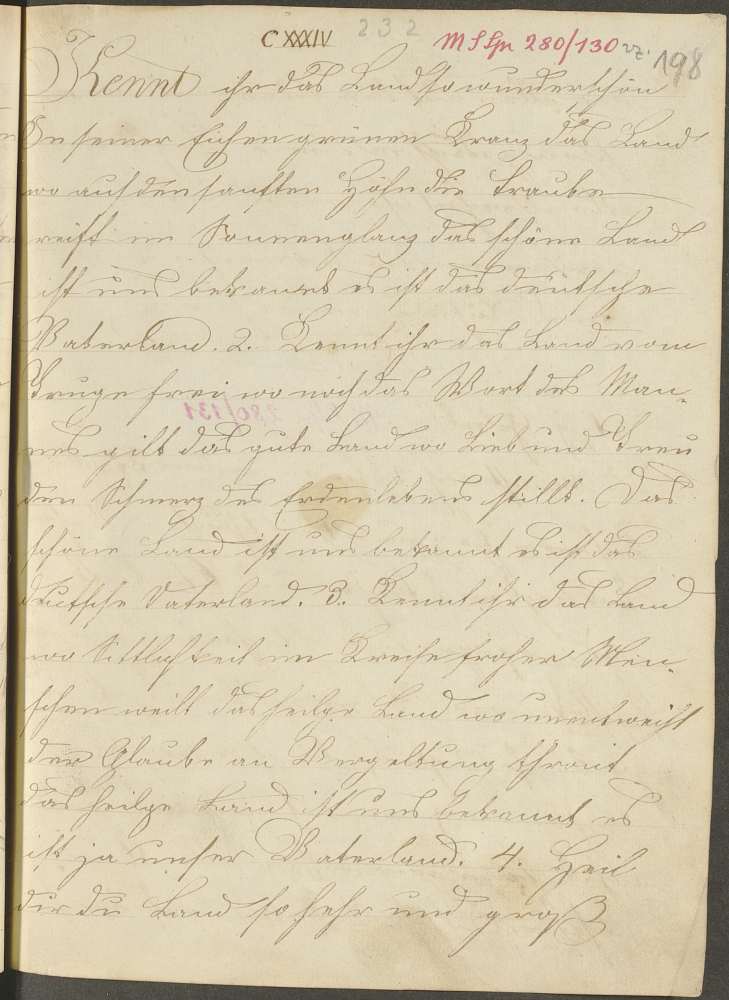 CXXXIV 232 MSLpr 280/130 vz. 198
Kennt ihr das Land so wunderschön
In seiner Eichen grünen Kranz das Land
wo auf den sanften Höhn die Traube
reift im Sonnenglanz das schöne Land
ist uns bekannt es ist das deutsche
Vaterland. 2. Kennt ihr das Land vom
Truge frei wo noch das Wort des Man-
nes gilt das gute Land wo Lieb und Treu
den Schmerz des Erdenlebens stillt. Das
schöne Land ist uns bekannt es ist das
deutsche Vaterland. 3. Kennt ihr das Land
wo Sittlichkeit im Kreise froher Men-
schen weilt das heilge Land wo unentweiht
der Glaube an Vergeltung thront
das heilge Land ist uns bekannt es
ist ja unser Vaterland. 4. Heil
dir du Land so hehr und groß
280/131